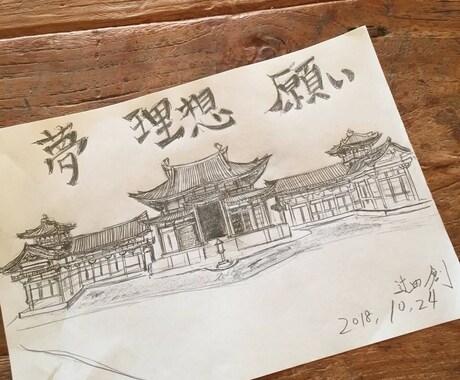 夢 理想 願い
辻田 創
2018, 10, 24